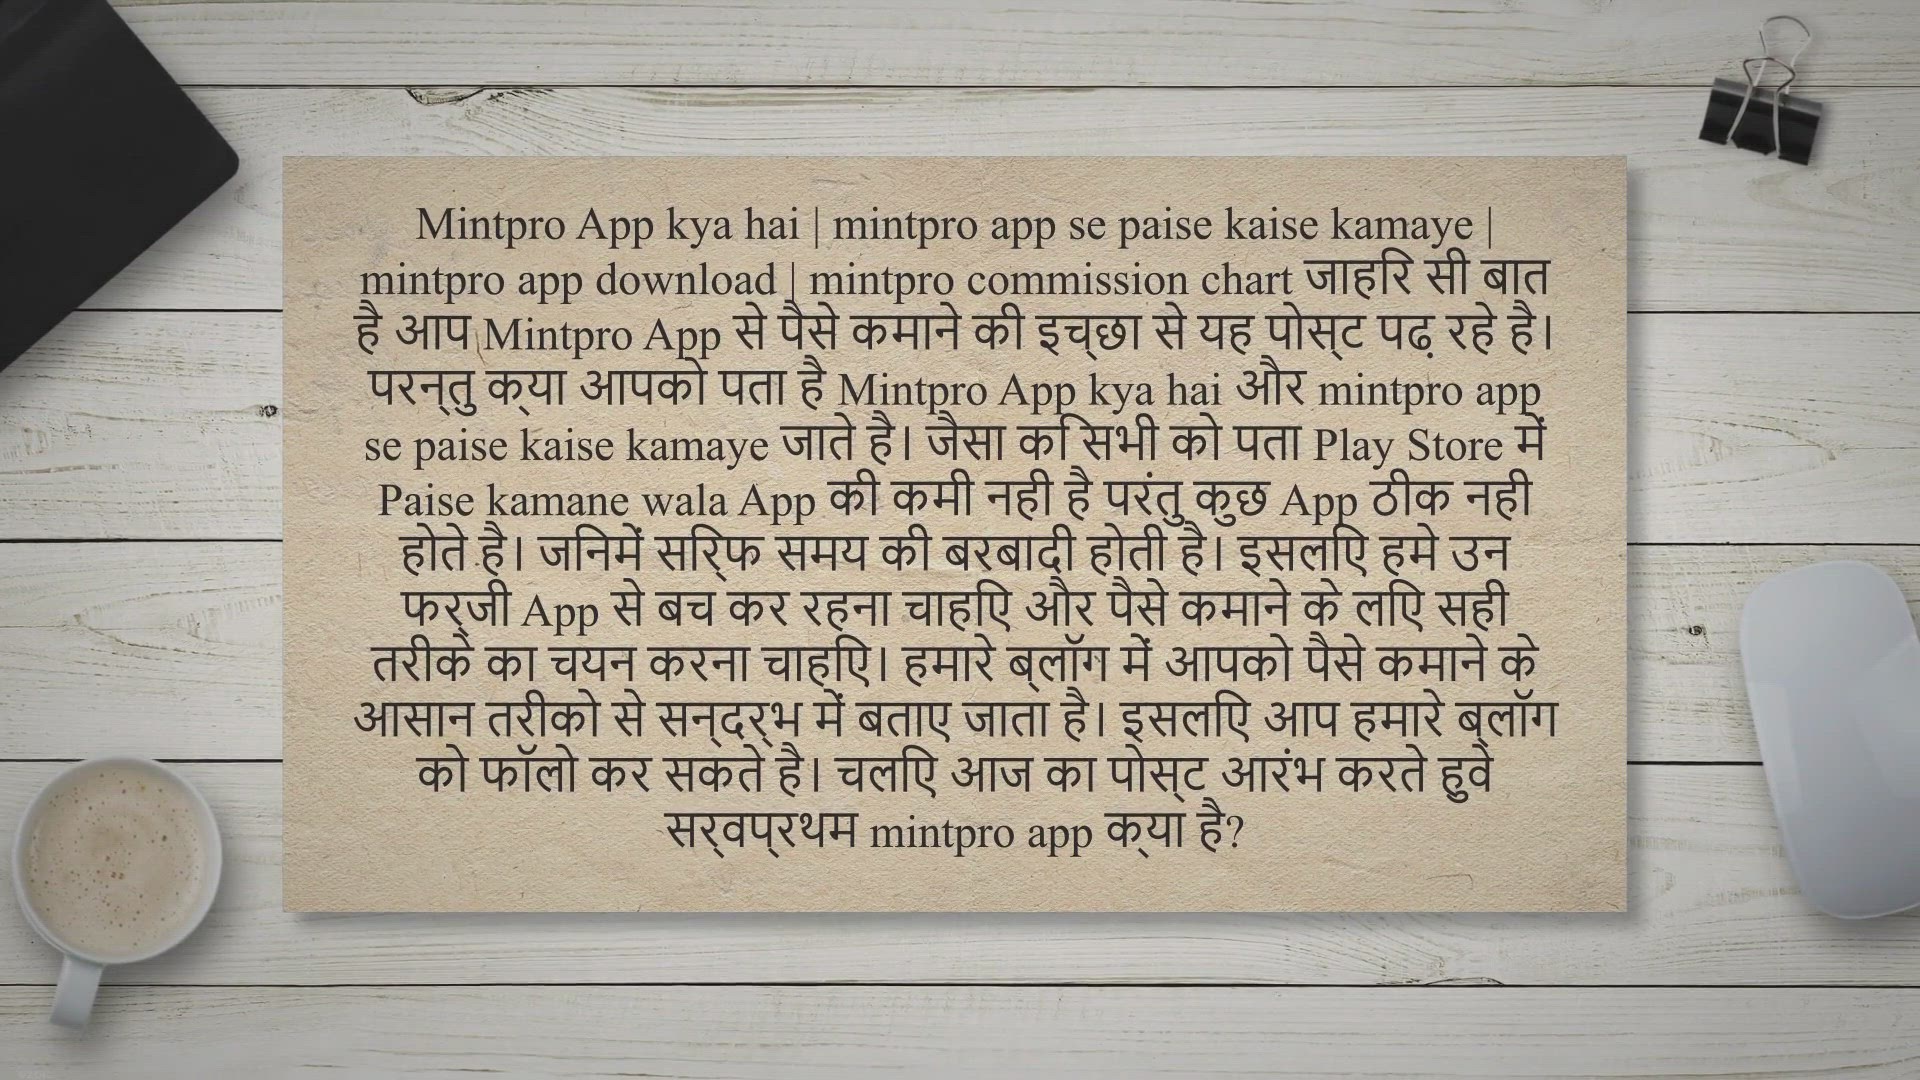 Mintpro App kya hai | mintpro app se paise kaise kamaye |
mintpro app download | mintpro commission chart जाहिर सी बात
है आप Mintpro App से पैसे कमाने की इच्छा से यह पोस्ट पढ़ रहे है।
परन्तु क्या आपको पता है Mintpro App kya hai और mintpro app
se paise kaise kamaye जाते है। जैसा कि सभी को पता Play Store में
Paise kamane wala App की कमी नही है परंतु कुछ App ठीक नही
होते है। जिनमें सिर्फ समय की बरबादी होती है। इसलिए हमे उन
फर्जी App से बच कर रहना चाहिए और पैसे कमाने के लिए सही
तरीके का चयन करना चाहिए। हमारे ब्लॉग में आपको पैसे कमाने के
आसान तरीको से सन्दर्भ में बताए जाता है। इसलिए आप हमारे ब्लॉग
को फॉलो कर सकते है। चलिए आज का पोस्ट आरंभ करते हुवे
सर्वप्रथम mintpro app क्या है?